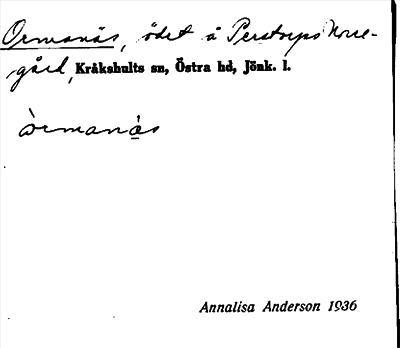 Ormanäs, ödet å Perstorps Norre-
gård, Kråkshults sn, Östra hd, Jönk. l.
òrmanä̀s
Annalisa Anderson 1936